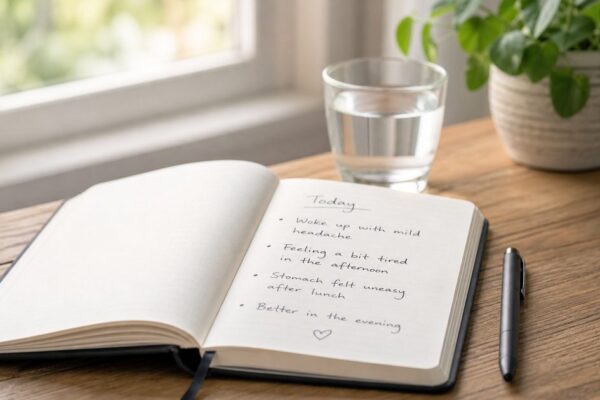 Today
• Woke up with mild
headache
• Feeling a bit tired
in the afternoon
• Stomach felt uneasy
after lunch
• Better in the evening
♡